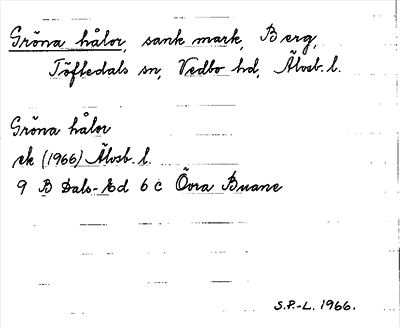 Gröna hålor, sank mark, Berg,
Töftedals sn, Vedbo hd, Älvsb. l.
Gröna hålor
ek (1966) Älvsb. l.
9 B Dals-Ed 6 c Övra Buane
S.P.-L. 1966.